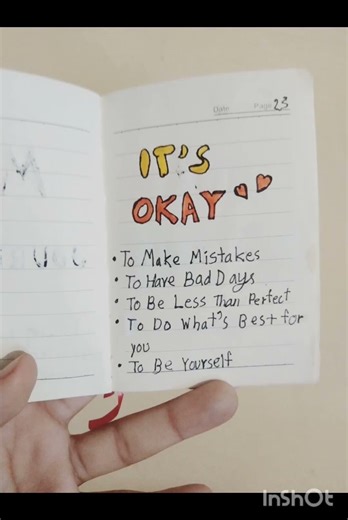 Date Page 23
IT'S
OKAY
• To Make Mistakes
• To Have Bad Days
• To Be Less Than Perfect
• To Do What's Best for
you
• To Be Yourself
InShOt